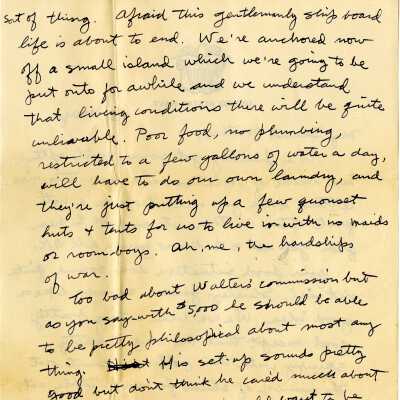 sort of thing. Afraid this gentlemanly ship board
life is about to end. We're anchored now
off a small island which we're going to be
put onto for awhile and we understand
that living conditions there will be quite
unlivable. Poor food, no plumbing,
restricted to a few gallons of water a day,
will have to do our own laundry, and
they're just putting up a few quonset
huts & tents for us to live in with no maids
or room boys. Ah, me, the hardships
of war.
Too bad about Walter's commission but
as you say - with $5,000 he should be able
to be pretty philosophical about most any
thing. His set-up sounds pretty
good but don't think he cared much about
to be